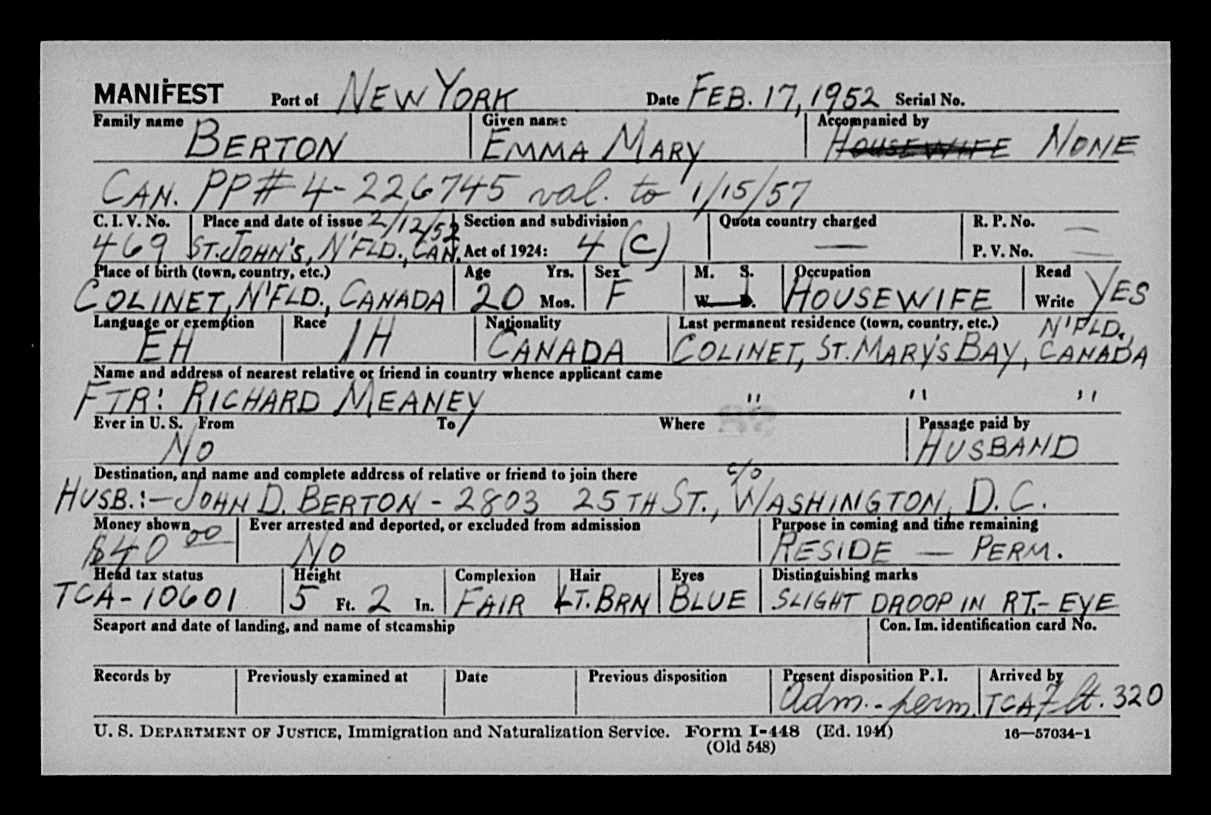 MANIFEST Port of NEW YORK Date FEB. 17, 1952 Serial No.
Family name BERTON Given name EMMA MARY Accompanied by HOUSEWIFE NONE
CAN. PP# 4-226745 val. to 1/15/57
C. I. V. No. Place and date of issue 2/12/52 Section and subdivision Quota country charged — R. P. No. —
469 ST. JOHN'S, N'FLD., CAN. Act of 1924: 4 (C) P. V. No. —
Place of birth (town, country, etc.) Age Yrs. Sex M. S. Occupation Read
COLINET, N'FLD., CANADA 20 Mos. F W. D. HOUSEWIFE Write YES
Language or exemption Race Nationality Last permanent residence (town, country, etc.) N'FLD.,
EH IH CANADA COLINET, ST. MARY'S BAY, CANADA
Name and address of nearest relative or friend in country whence applicant came
FTR: RICHARD MEANEY " " "
Ever in U. S. From To Where Passage paid by
NO HUSBAND
Destination, and name and complete address of relative or friend to join there c/o
HUSB.:— JOHN D. BERTON - 2803 25TH ST., WASHINGTON, D.C.
Money shown Ever arrested and deported, or excluded from admission Purpose in coming and time remaining
$40 00 NO RESIDE — PERM.
Head tax status Height Complexion Hair Eyes Distinguishing marks
TCA-10601 5 Ft. 2 In. FAIR LT. BRN BLUE SLIGHT DROOP IN RT.- EYE
Seaport and date of landing, and name of steamship Con. Im. identification card No.
Records by Previously examined at Date Previous disposition Present disposition P. I. Arrived by
Adm.-perm. TCA Flt. 320
U. S. DEPARTMENT OF JUSTICE, Immigration and Naturalization Service. Form I-448 (Ed. 1941) 16—57034-1
(Old 548)